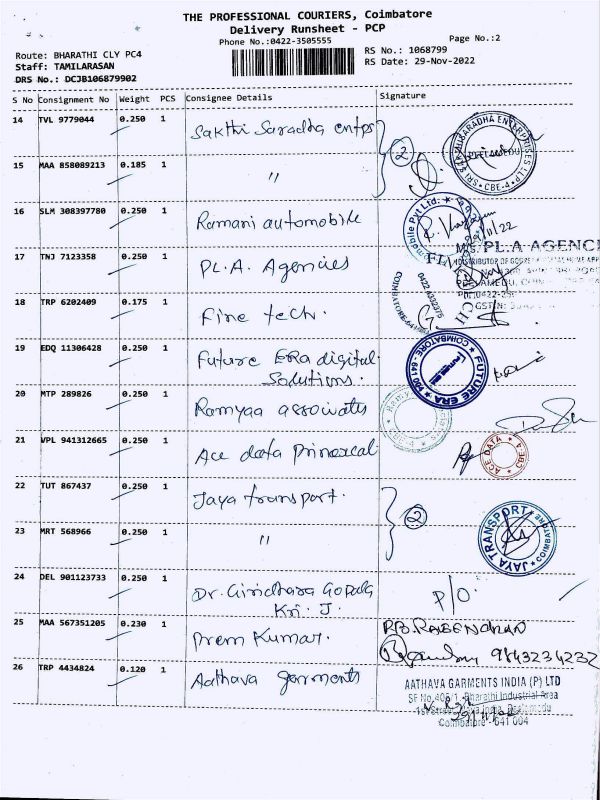 THE PROFESSIONAL COURIERS, Coimbatore
Delivery Runsheet - PCP
Phone No.:0422-3505555
Page No.:2
Route: BHARATHI CLY PC4
Staff: TAMILARASAN
DRS No.: DCJB106879902
RS No.: 1068799
RS Date: 29-Nov-2022
S No Consignment No Weight PCS Consignee Details Signature
14 TVL 9779044 0.250 1 Sakthi Saradha entps 2
15 MAA 858089213 0.185 1 "
16 SLM 308397780 0.250 1 Ramani automobile
29/11/22
17 TNJ 7123358 0.250 1 PL.A. Agencies
M/S. PL.A AGENCI
18 TRP 6202409 0.175 1 Fine tech.
0422 4332375
COIMBATORE-641
19 EDQ 11306428 0.250 1 Future ERA digital
Solutions.
FUTURE ERA COIMBATORE - 641 004
20 MTP 289826 0.250 1 Ramyaa associates
21 VPL 941312665 0.250 1 Ace data
ACE DATA CBE-4
22 TUT 867437 0.250 1 Jaya transport. 2
23 MRT 568966 0.250 1 "
JAYA TRANSPORT COIMBATORE
24 DEL 901123733 0.250 1 Dr. Giridhara Gopala P/O.
Kri. J.
25 MAA 567351205 0.230 1 Prem Kumar.
9843234232
26 TRP 4434824 0.120 1 Aathava garments
AATHAVA GARMENTS INDIA (P) LTD
SF No.406/1, Bharathi Industrial Area
Coimbatore - 641 004